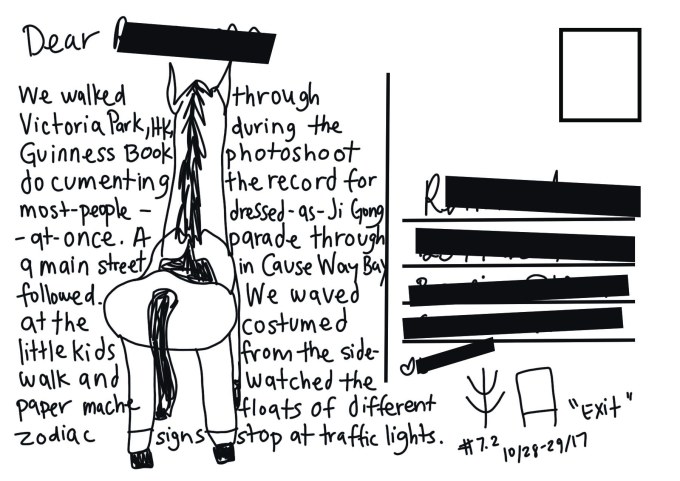 Dear
We walked through
Victoria Park, HK, during the
Guinness Book photoshoot
documenting the record for
most-people - dressed-as-Ji Gong
-at-once. A parade through
a main street in Cause Way Bay
followed. We waved
at the costumed
little kids from the side-
walk and watched the
paper mache floats of different
zodiac signs stop at traffic lights.
"Exit"
#7.2 10/28-29/17